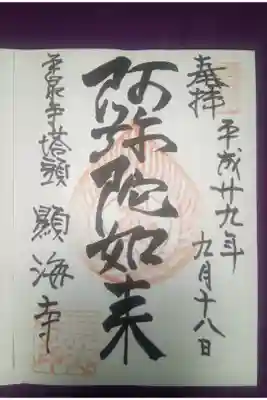 奉拝
平成廿九年
九月十八日
阿弥陀如来
平泉寺塔頭 顕海寺